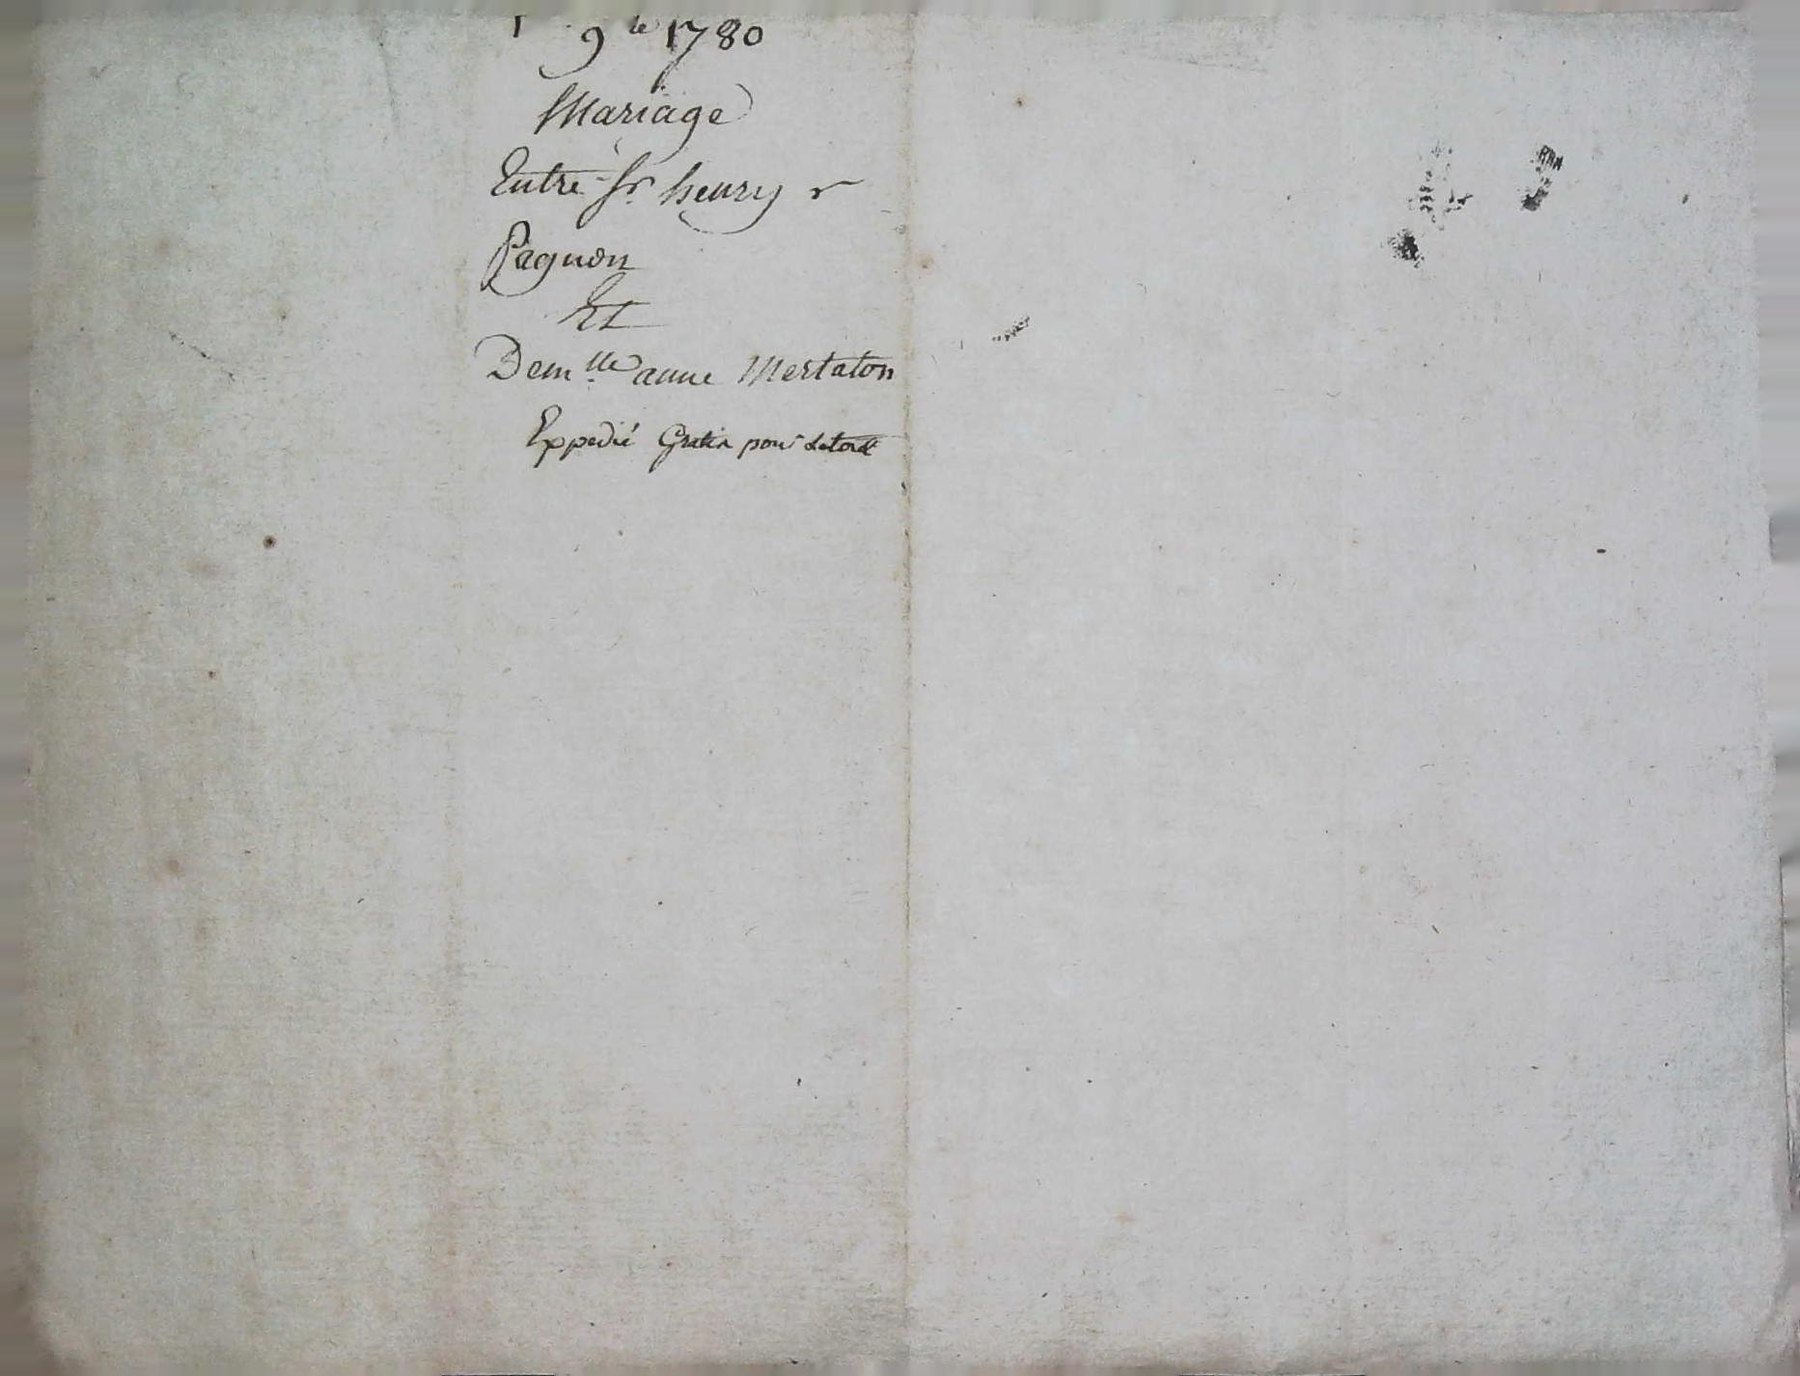 9 le 1780
Mariage
Entre Sr henry
Pagnon
Et
Demlle anne Mestaton
Expedié Gratis pour